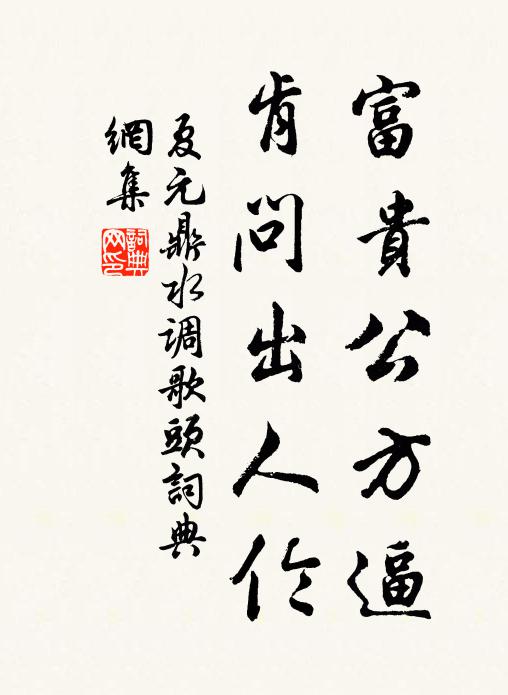 富貴公方逼
肯問出人伶
夏元鼎水调歌頭詞典
網集
詞典
网印